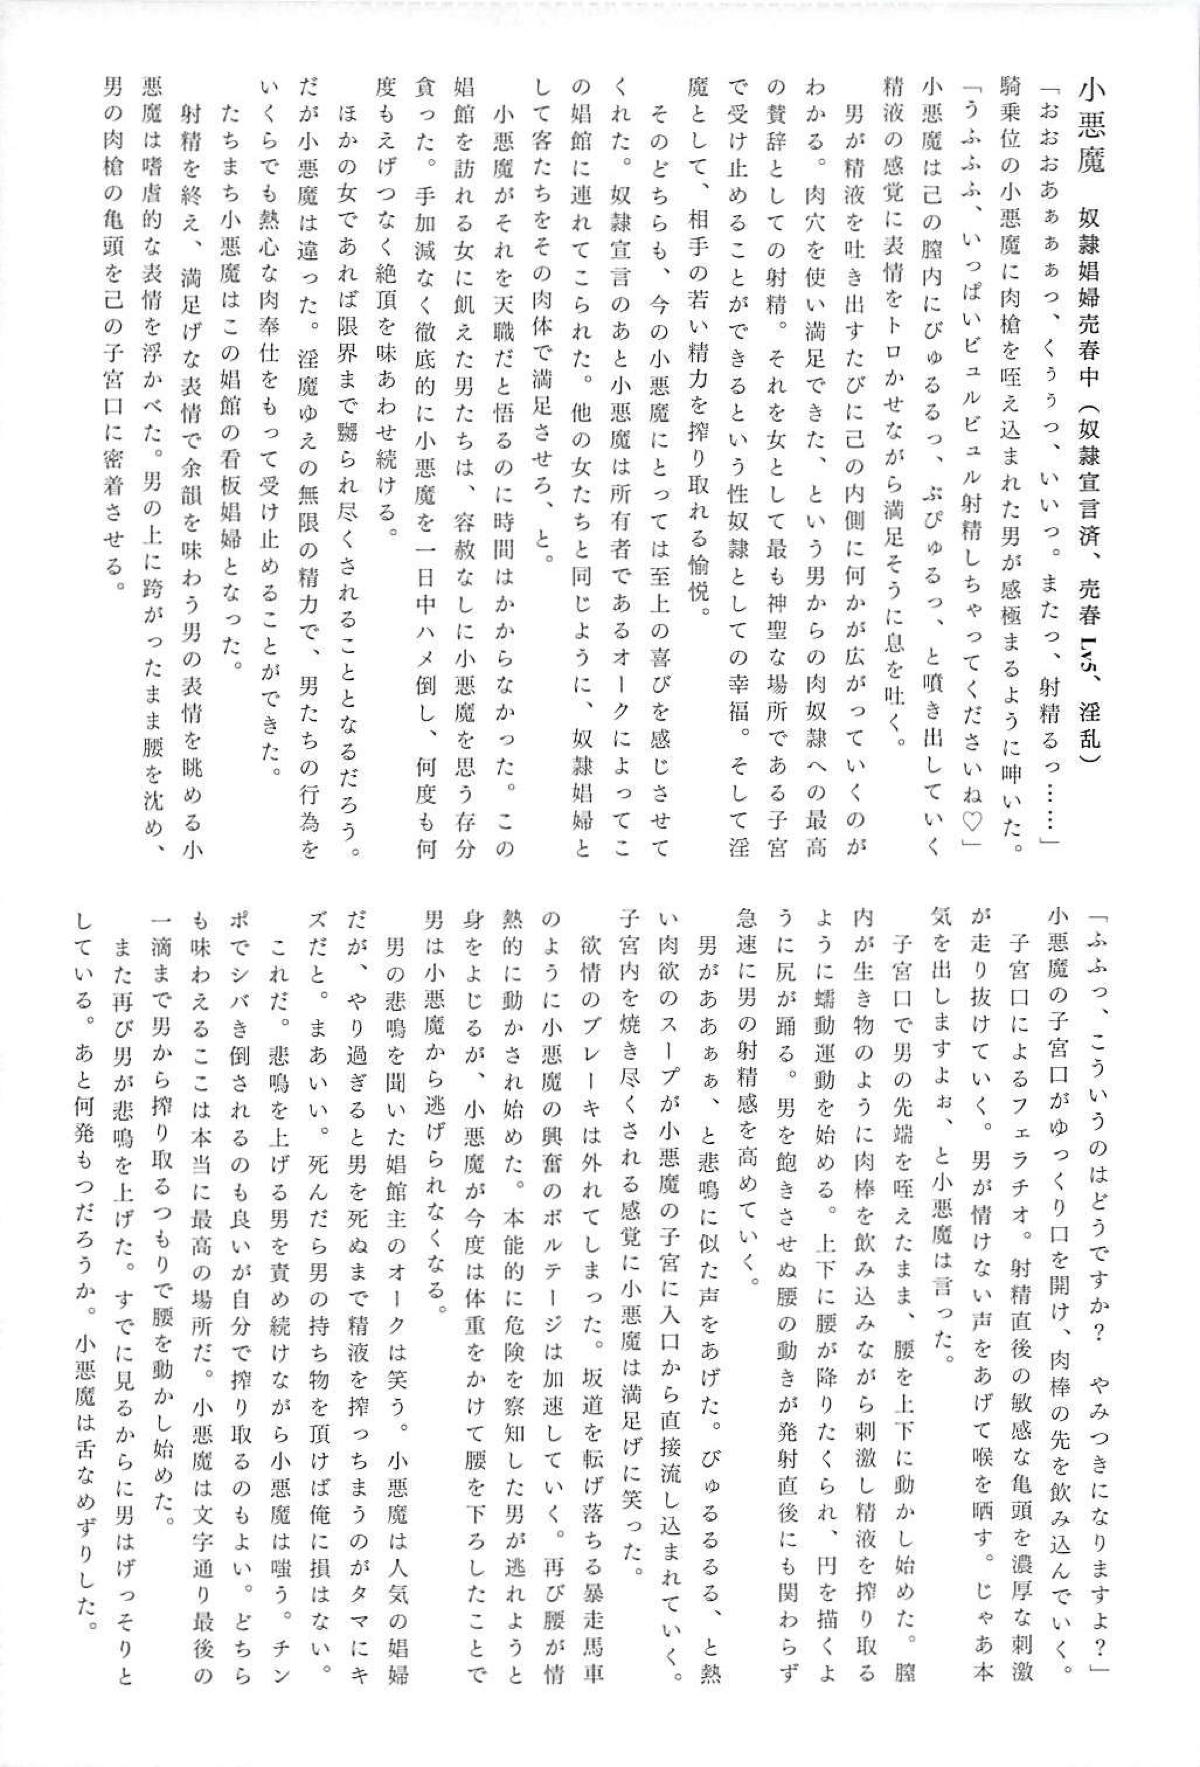 小悪魔　奴隷娼婦売春中（奴隷宣言済、売春Lv5、淫乱）
「おおおあぁぁぁっ、くぅぅっ、いいっ。またっ、射精るっ……」
騎乗位の小悪魔に肉槍を咥え込まれた男が感極まるように呻いた。
「うふふふ、いっぱいビュルビュル射精しちゃってくださいね♡」
小悪魔は己の膣内にびゅるるっ、ぶぴゅるっ、と噴き出していく
精液の感覚に表情をトロかせながら満足そうに息を吐く。
男が精液を吐き出すたびに己の内側に何かが広がっていくのが
わかる。肉穴を使い満足できた、という男からの肉奴隷への最高
の賛辞としての射精。それを女として最も神聖な場所である子宮
で受け止めることができるという性奴隷としての幸福。そして淫
魔として、相手の若い精力を搾り取れる愉悦。
そのどちらも、今の小悪魔にとっては至上の喜びを感じさせて
くれた。奴隷宣言のあと小悪魔は所有者であるオークによってこ
の娼館に連れてこられた。他の女たちと同じように、奴隷娼婦と
して客たちをその肉体で満足させろ、と。
小悪魔がそれを天職だと悟るのに時間はかからなかった。この
娼館を訪れる女に飢えた男たちは、容赦なしに小悪魔を思う存分
貪った。手加減なく徹底的に小悪魔を一日中ハメ倒し、何度も何
度もえげつなく絶頂を味あわせ続ける。
ほかの女であれば限界まで嬲られ尽くされることとなるだろう。
だが小悪魔は違った。淫魔ゆえの無限の精力で、男たちの行為を
いくらでも熱心な肉奉仕をもって受け止めることができた。
たちまち小悪魔はこの娼館の看板娼婦となった。
射精を終え、満足げな表情で余韻を味わう男の表情を眺める小
悪魔は嗜虐的な表情を浮かべた。男の上に跨がったまま腰を沈め、
男の肉槍の亀頭を己の子宮口に密着させる。
「ふふっ、こういうのはどうですか？　やみつきになりますよ？」
小悪魔の子宮口がゆっくり口を開け、肉棒の先を飲み込んでいく。
子宮口によるフェラチオ。射精直後の敏感な亀頭を濃厚な刺激
が走り抜けていく。男が情けない声をあげて喉を晒す。じゃあ本
気を出しますよぉ、と小悪魔は言った。
子宮口で男の先端を咥えたまま、腰を上下に動かし始めた。膣
内が生き物のように肉棒を飲み込みながら刺激し精液を搾り取る
ように蠕動運動を始める。上下に腰が降りたくられ、円を描くよ
うに尻が踊る。男を飽きさせぬ腰の動きが発射直後にも関わらず
急速に男の射精感を高めていく。
男がああぁぁ、と悲鳴に似た声をあげた。びゅるるるる、と熱
い肉欲のスープが小悪魔の子宮に入口から直接流し込まれていく。
子宮内を焼き尽くされる感覚に小悪魔は満足げに笑った。
欲情のブレーキは外れてしまった。坂道を転げ落ちる暴走馬車
のように小悪魔の興奮のボルテージは加速していく。再び腰が情
熱的に動かされ始めた。本能的に危険を察知した男が逃れようと
身をよじるが、小悪魔が今度は体重をかけて腰を下ろしたことで
男は小悪魔から逃げられなくなる。
男の悲鳴を聞いた娼館主のオークは笑う。小悪魔は人気の娼婦
だが、やり過ぎると男を死ぬまで精液を搾っちまうのがタマにキ
ズだと。まあいい。死んだら男の持ち物を頂けば俺に損はない。
これだ。悲鳴を上げる男を責め続けながら小悪魔は嗤う。チン
ポでシバき倒されるのも良いが自分で搾り取るのもよい。どちら
も味わえるここは本当に最高の場所だ。小悪魔は文字通り最後の
一滴まで男から搾り取るつもりで腰を動かし始めた。
また再び男が悲鳴を上げた。すでに見るからに男はげっそりと
している。あと何発もつだろうか。小悪魔は舌なめずりした。